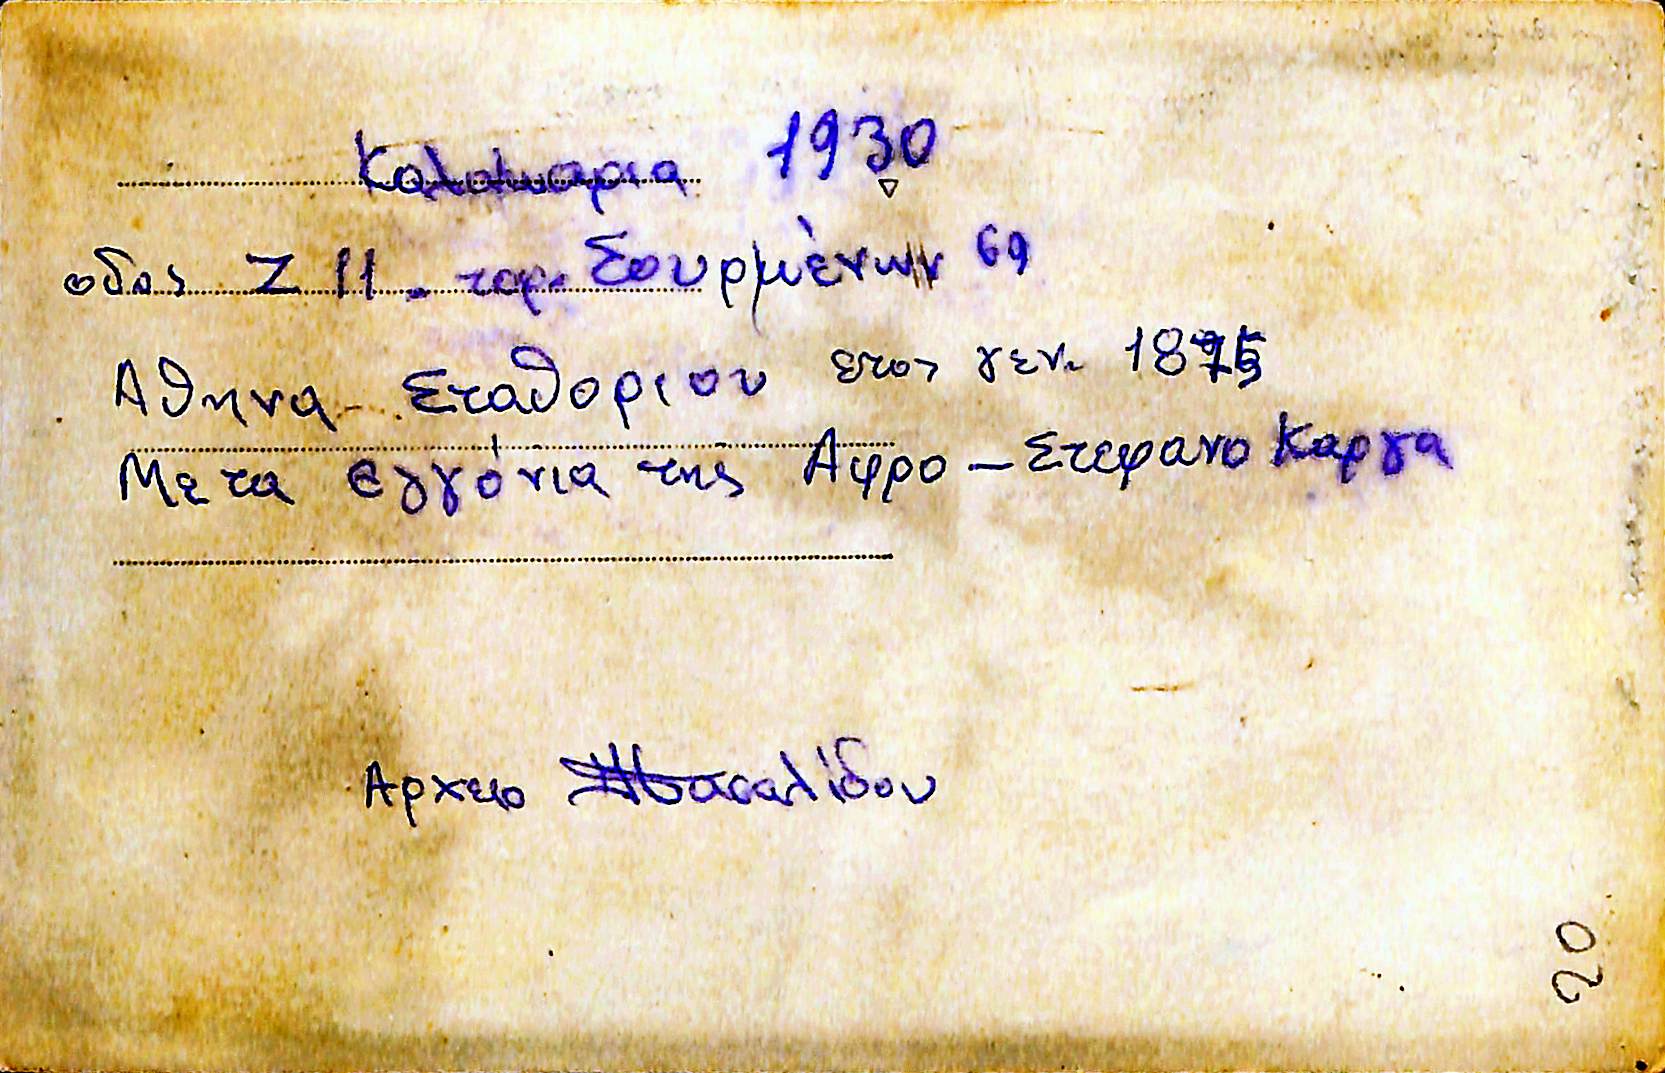 Καλαμαρια 1930
οδος Ζ 11. ταρ. Σουρμένων 69
Αθηνα Σταθοριου ετος γεν. 1875
Με τα εγγόνια της Αφρο – Στεφανο Καργα
Αρχειο Μπασαλίδου
20